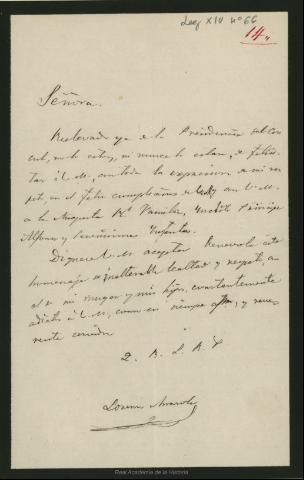 Leg XIV nº 66
14.
Señora.
Relevado ya de la Presidencia del Con
sejo, no lo estoy, ni nunca lo estaré, de felici
tar á V. M., con toda la expresion de mi res
peto, en el feliz cumpleaños de hoy con V. M.
a la Augusta Rl Familia, Príncipe
Alfonso y Serenísimas Infantas.
Dígnese V. M. aceptar benevola este
homenaje de inalterable lealtad y respeto, con
el de mi muger y mis hijos, constantemente
adictos á V. M., como su siempre y reve
rente servidor
Lorenzo Arrazola
Real Academia de la Historia